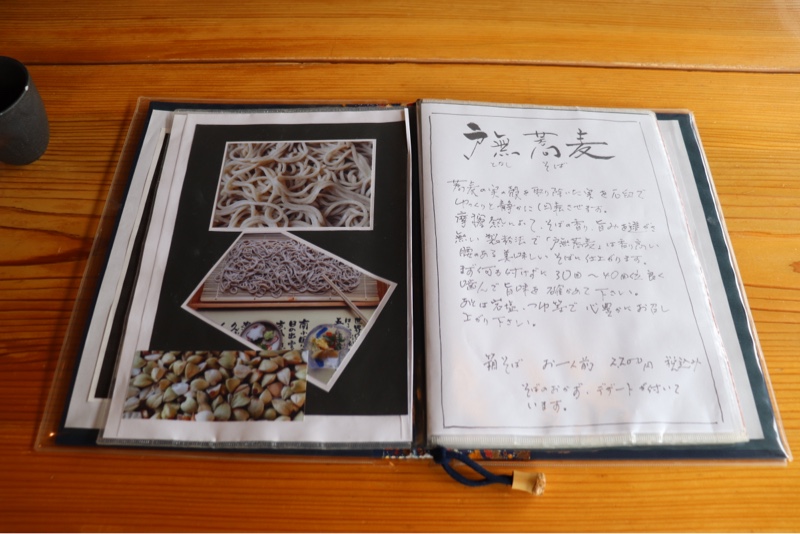 戸無蕎麦
となし そば
蕎麦の実の殻を取り除いた実を石臼で
ゆっくりと静かに回転させます。
摩擦熱によって、そばの香り、旨みを逃がさ
無い製粉法で「戸無蕎麦」は香り高い
腰のある美味しいそばに仕上がります。
まず何も付けずに30回〜40回位良く
噛んで旨味を確かめて下さい。
あとは岩塩、つゆ等で心豊かにお召し
上がり下さい。
箱そば お一人前 2200円 税込み
そばのおかず、デザートが付いて
います。